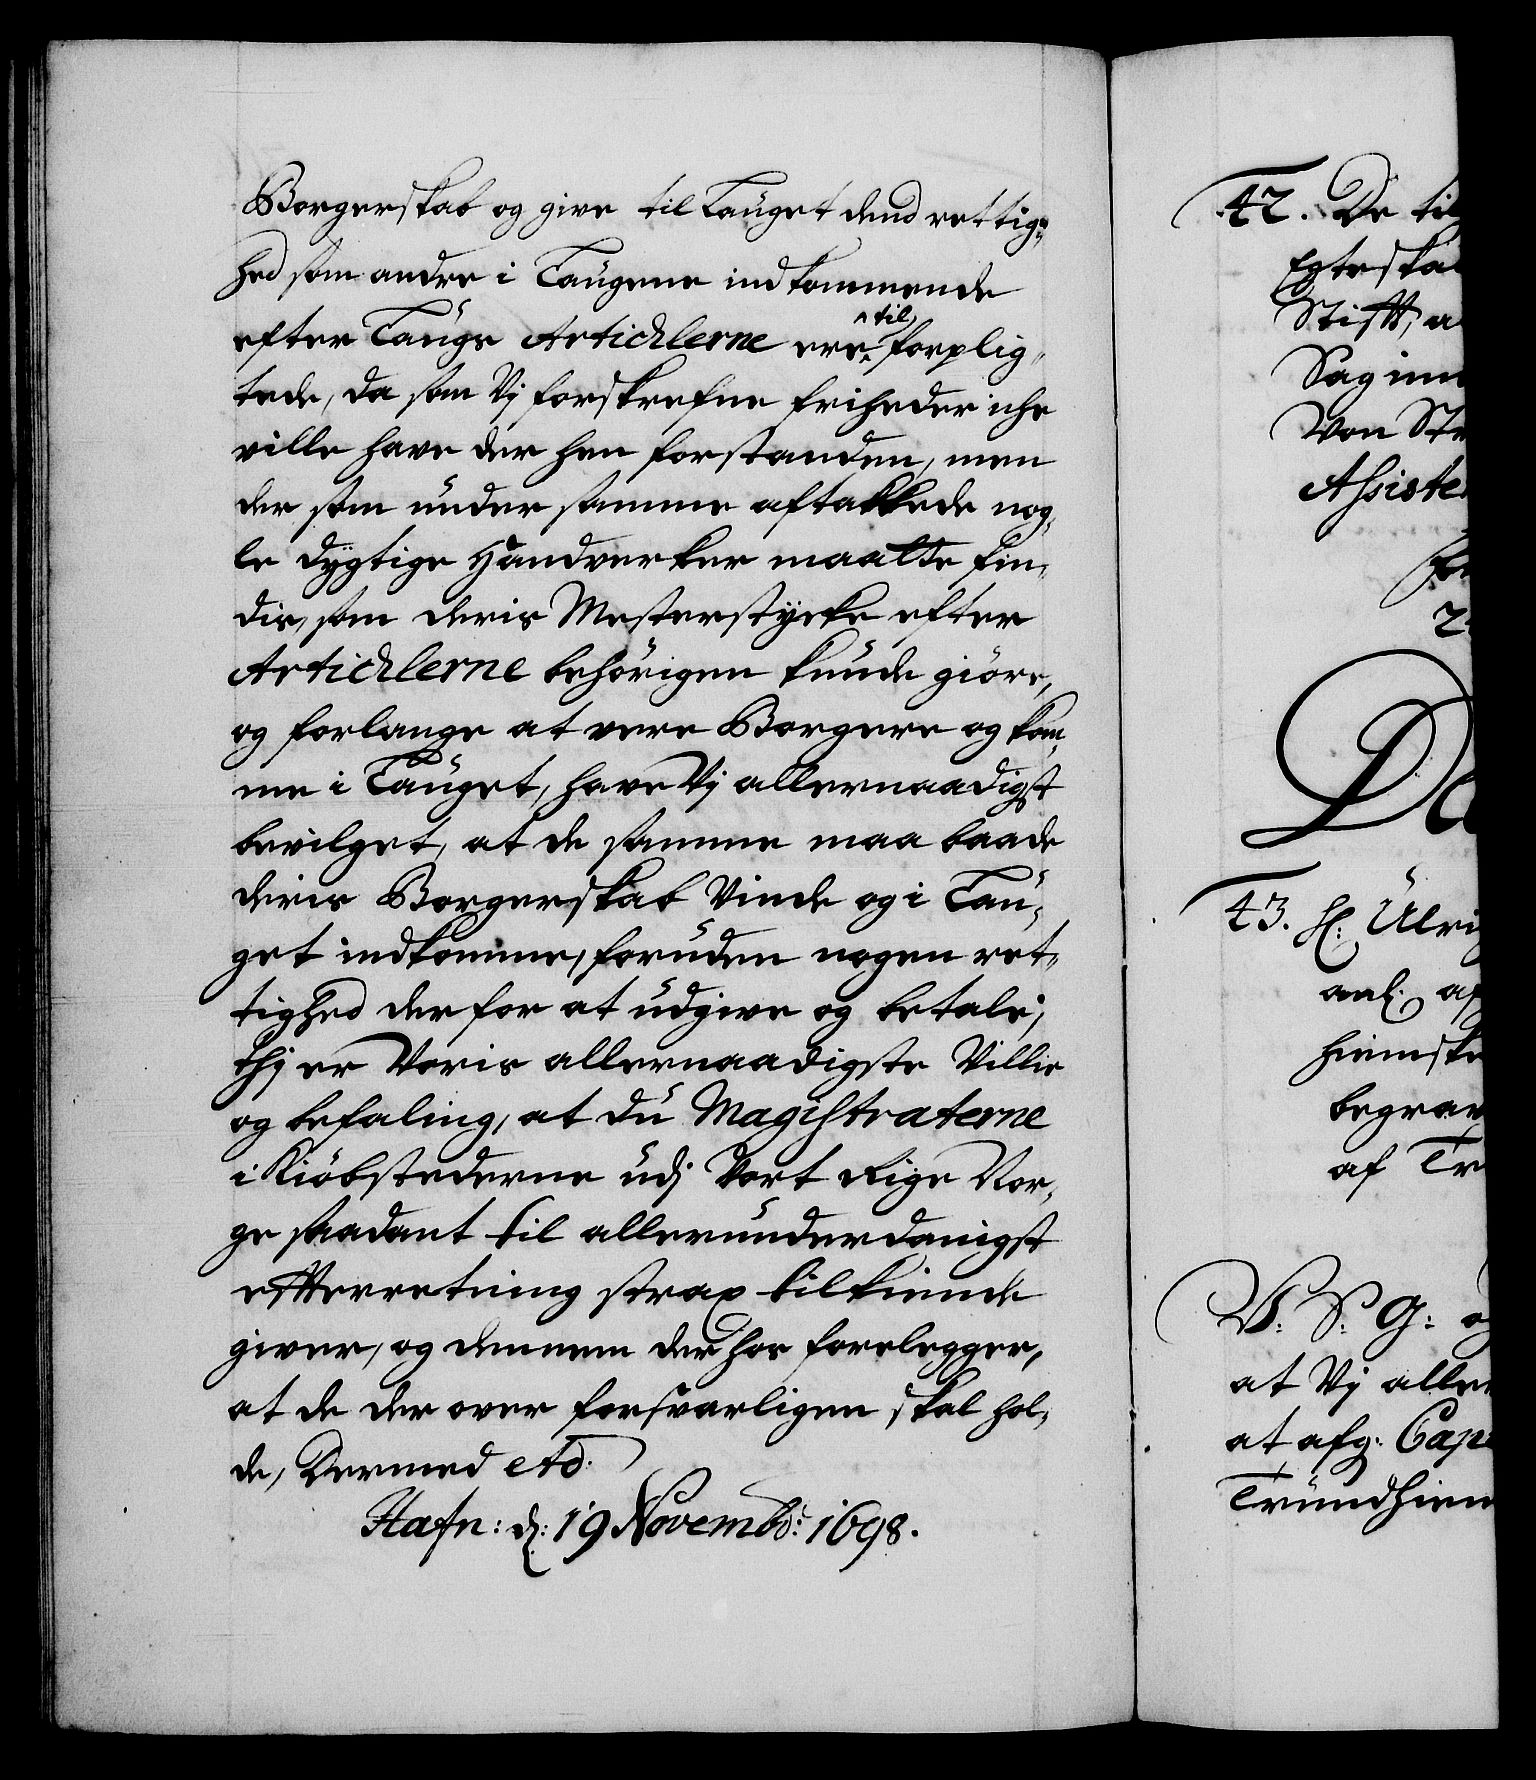 Borgerskab og give til Lauget dend rettig-
hed som andre i Laugene indkommende
efter Laugs Articklerne ere til forplig-
tede, da som Vj forskrefne friheder iche
ville have der hen forstanden, men
der som under samme aftakkede nog-
le dygtige Handverker maatte fin-
dis, som deris Mesterstycke efter
Articklerne behörigen kunde giöre,
og forlange at vere Borgere og kom-
me i Lauget, have Vj allernaadigst
bevilget, at de samme maa baade
deris Borgerskab Vinde og i Lau-
get indkomme, foruden nogen ret-
tighed derfor at udgive og betale;
Thj er Voris allernaadigste Villie
og befaling, at du Magistraterne
i Kiöbstederne udj Vort Rige Nor-
ge saadant til allerunderdanigst
efterretning strax tilkiende
giver, og dennem der hos forelegger,
at de der over forsvarligen skal hol-
de, Dermed etc.
Hafn: d: 19 Novembr: 1698.
42. De til
Egteska
Stift, a
Sag im
Von St
Assiste
2
Da
43. H: Ulri
anl. af
hiemske
begrav
af Tr
V. S. G: og
at Vj alle
at afg: Cap
Trundhiem